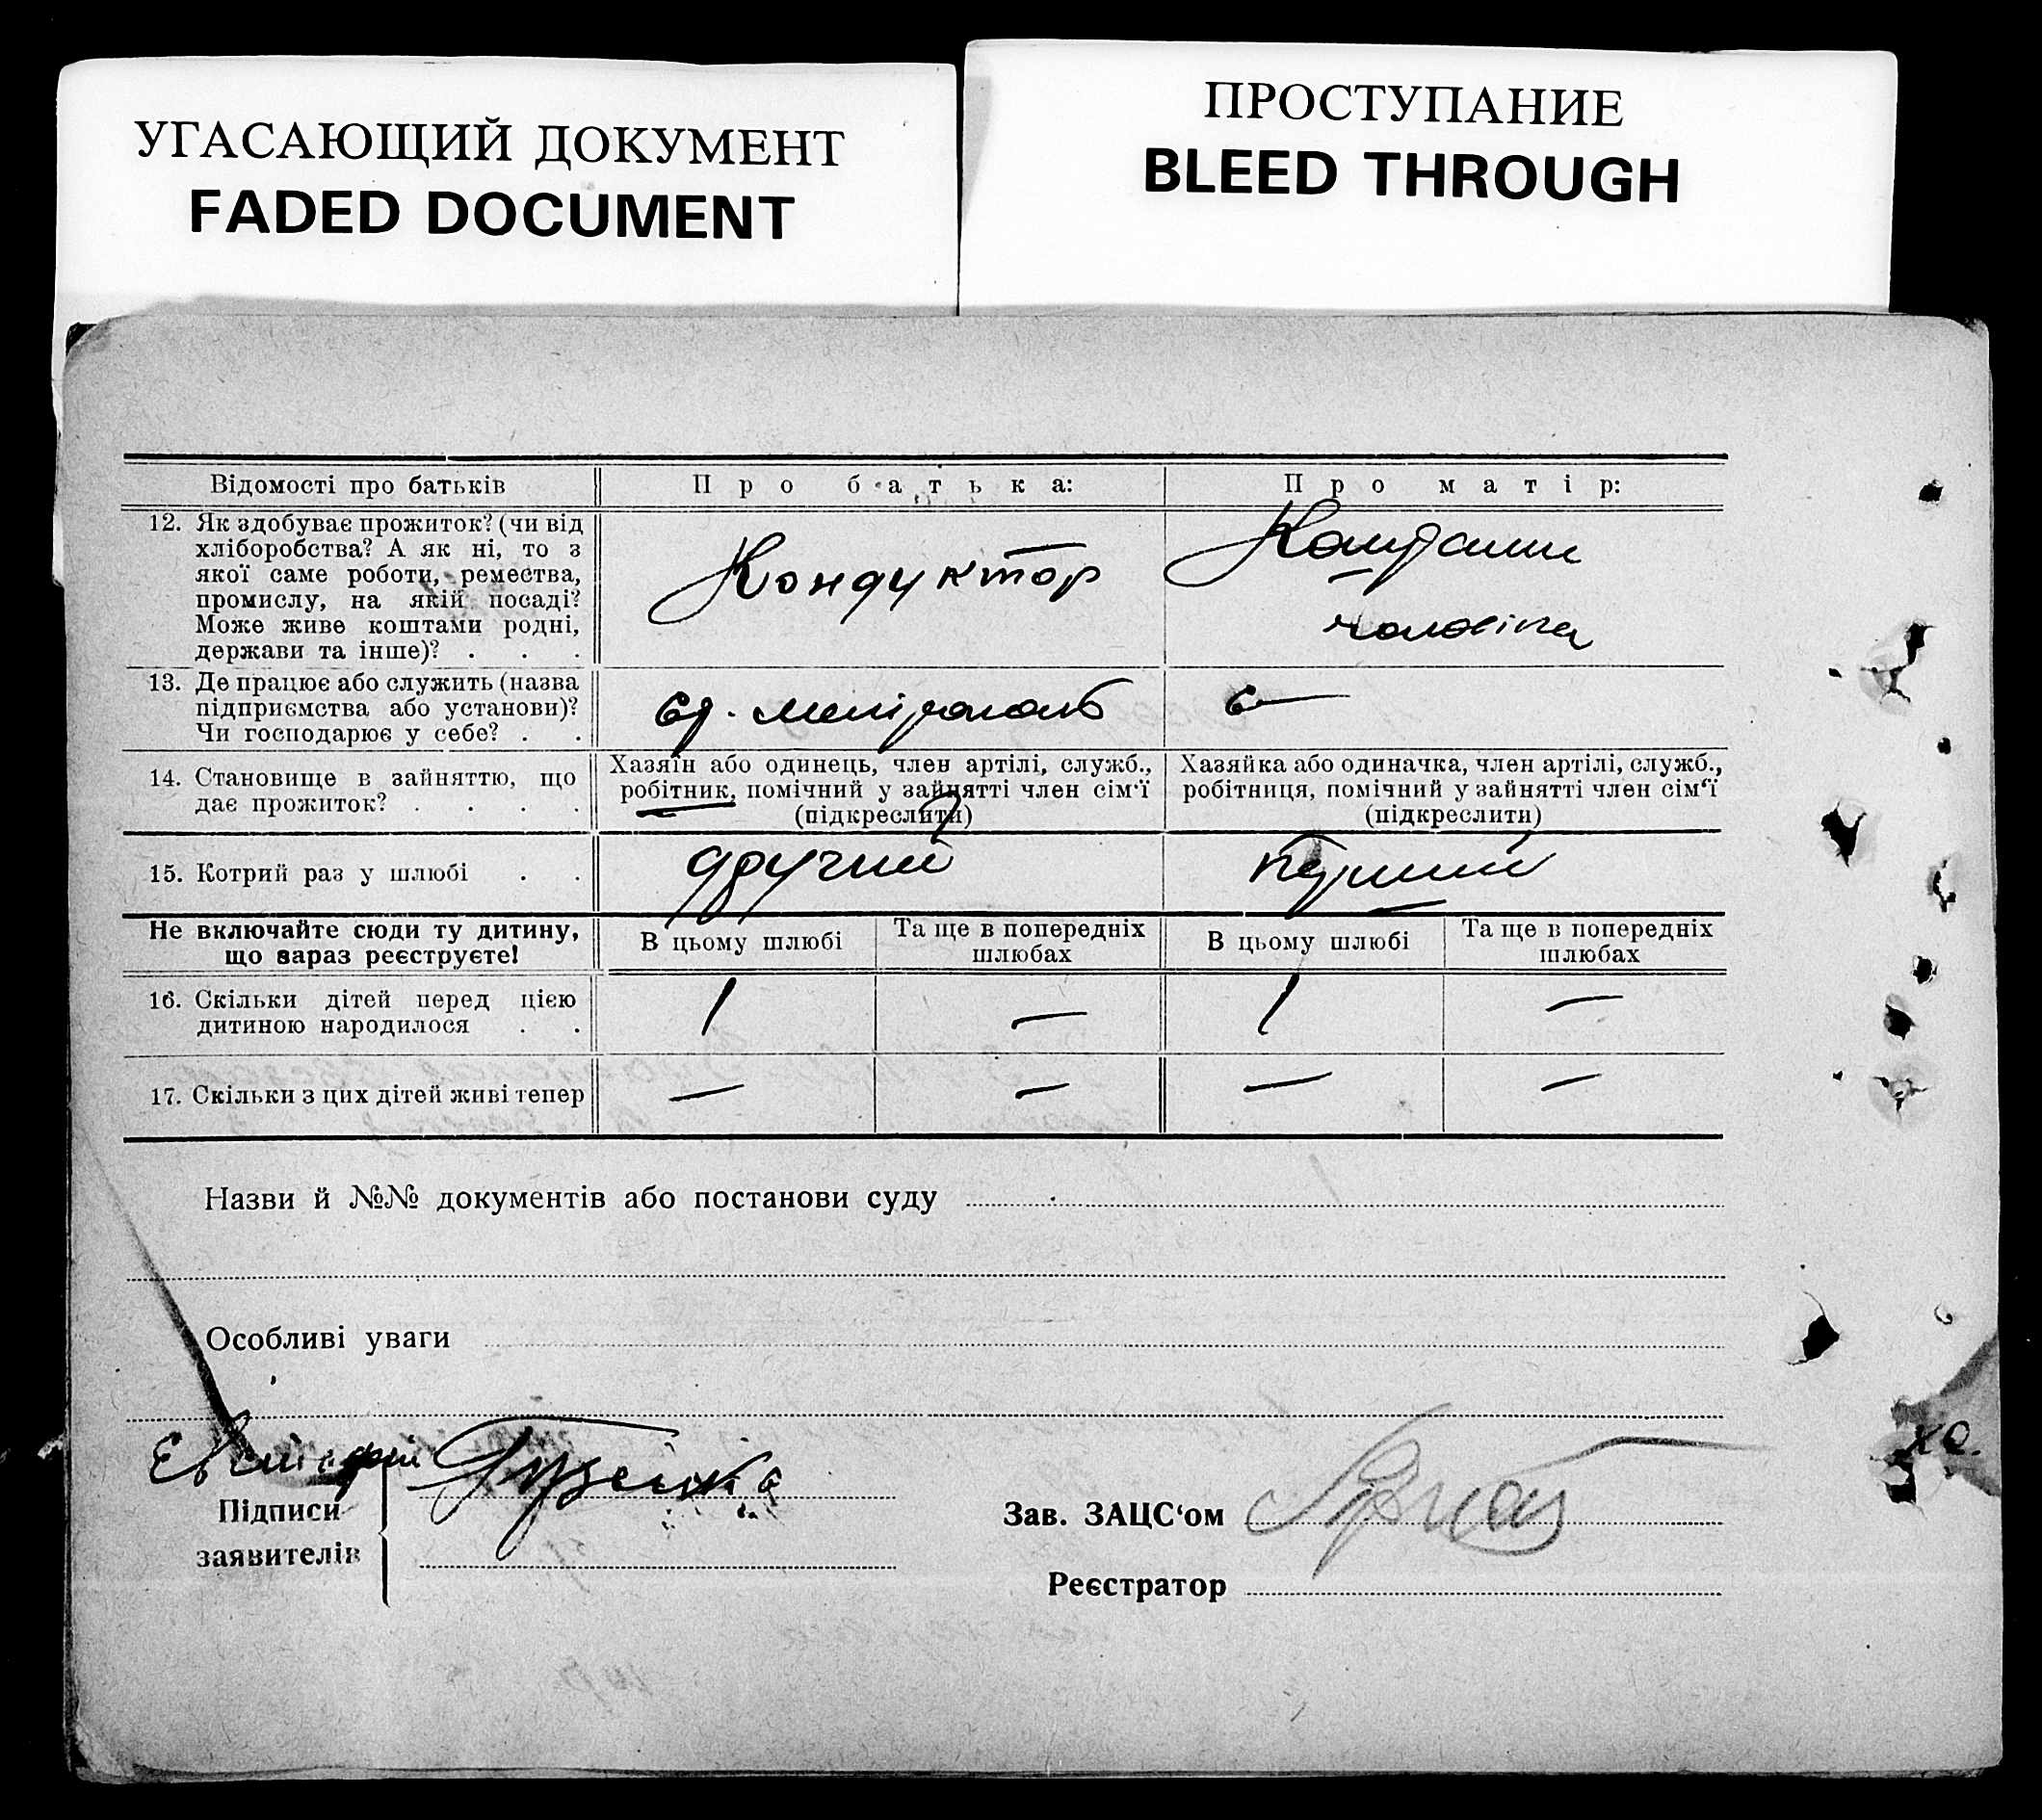 УГАСАЮЩИЙ ДОКУМЕНТ
FADED DOCUMENT
ПРОСТУПАНИЕ
BLEED THROUGH
Відомості про батьків
Про батька:
Про матір:
12. Як здобуває прожиток? (чи від
хліборобства? А як ні, то з
якої саме роботи, ремества,
промислу, на якій посаді?
Може живе коштами родні,
держави та інше)? . . .
Кондуктор
Коштами
чоловіка
13. Де працює або служить (назва
підприємства або установи)?
Чи господарює у себе? . .
14. Становище в зайняттю, що
дає прожиток? . . . .
Хазяїн або одинець, член артілі, служб.,
робітник, помічний у зайнятті член сім'ї
(підкреслити)
Хазяйка або одиначка, член артілі, служб.,
робітниця, помічний у зайнятті член сім'ї
(підкреслити)
15. Котрий раз у шлюбі . .
другий
перший
Не включайте сюди ту дитину,
що зараз реєструєте!
В цьому шлюбі
Та ще в попередніх
шлюбах
В цьому шлюбі
Та ще в попередніх
шлюбах
16. Скільки дітей перед цією
дитиною народилося . .
1
—
1
—
17. Скільки з цих дітей живі тепер
—
—
—
—
Назви й №№ документів або постанови суду
Особливі уваги
Підписи
заявителів
Зав. ЗАЦС'ом
Реєстратор